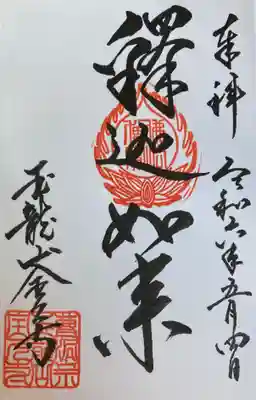 奉拝 令和六年五月四日
釋迦如来
龍山金寺